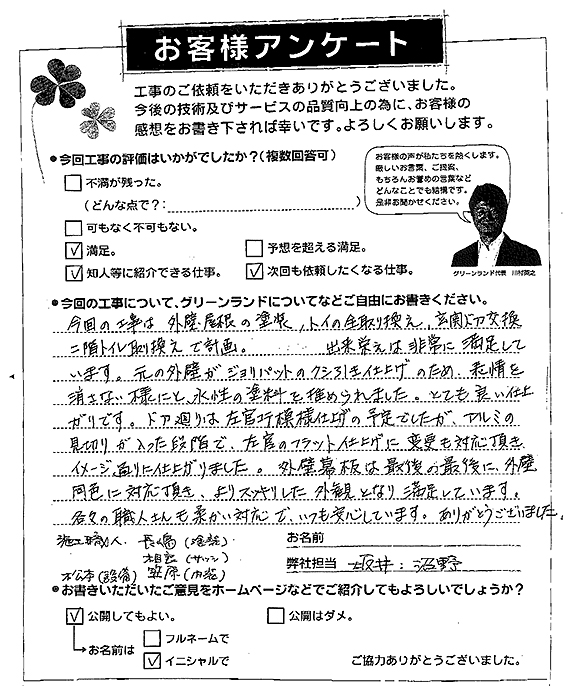 お客様アンケート
工事のご依頼をいただきありがとうございました。
今後の技術及びサービスの品質向上の為に、お客様の
感想をお書き下されば幸いです。よろしくお願いします。
●今回工事の評価はいかがでしたか?(複数回答可)
お客様の声が私たちを熱くします。
厳しいお言葉、ご提案、
もちろんお誉めの言葉など
どんなことでも結構です。
是非お聞かせください。
□不満が残った。
(どんな点で?: )
□可もなく不可もない。
☑満足。 □予想を超える満足。
☑知人等に紹介できる仕事。 ☑次回も依頼したくなる仕事。
グリーンランド代表 川村英之
●今回の工事について、グリーンランドについてなどご自由にお書きください。
今回の工事は外壁屋根の塗装、トイの全取り換え、玄関ドア交換
二階トイレ取換えで計画。 出来栄えは非常に満足して
います。元の外壁がジョリパットのクシ引き仕上げのため、表情を
消さない様にと、水性の塗料を推められました。とても良い仕上
がりです。ドア廻りは左官巧模様仕上げの予定でしたが、アルミの
見切りが入った段階で、左官のフラット仕上げに変更も対応頂き
イメージ通りに仕上がりました。外壁幕板は最後の最後に、外壁
同色に対応頂き、よりスッキリした外観となり満足しています。
各々の職人さんも柔かい対応で、いつも安心しています。ありがとうございました。
施工職人、長嶋(塗装) お名前
相良(サッシ)
松本(設備) 笠原(内装) 弊社担当 坂井:沼野
●お書きいただいたご意見をホームページなどでご紹介してもよろしいでしょうか?
☑公開してもよい。 □公開はダメ。
お名前は □フルネームで
☑イニシャルで
ご協力ありがとうございました。